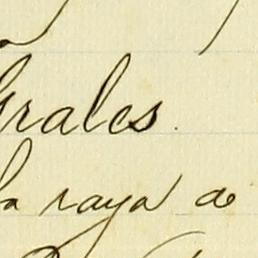 grales.
la raya de